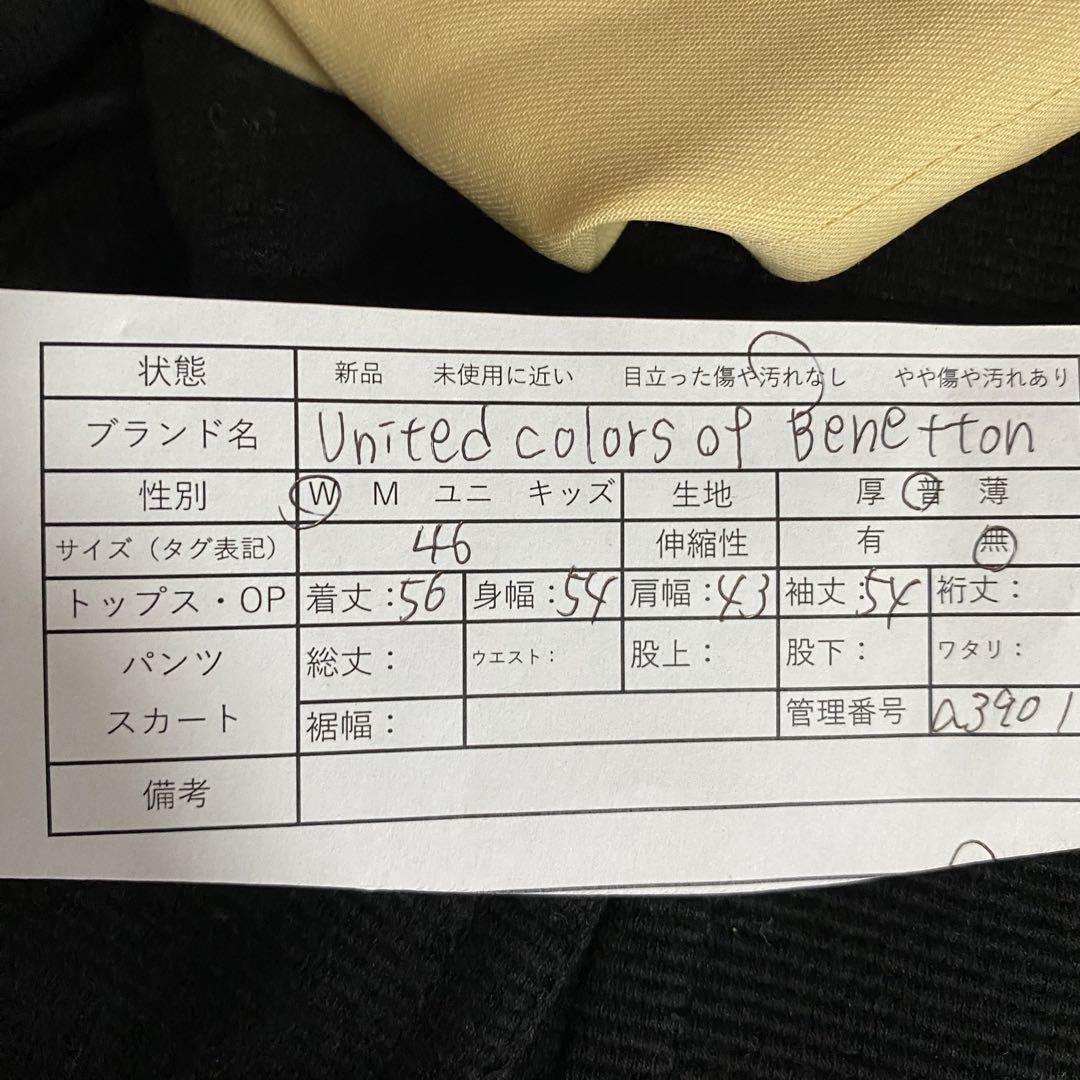 状態 新品 未使用に近い 目立った傷や汚れなし やや傷や汚れあり
ブランド名 United colors of Benetton
性別 W M ユニ キッズ 生地 厚 普 薄
サイズ（タグ表記） 46 伸縮性 有 無
トップス・OP 着丈：56 身幅：54 肩幅：43 袖丈：54 裄丈：
パンツ 総丈： ウエスト： 股上： 股下： ワタリ：
スカート 裾幅： 管理番号 a3901
備考